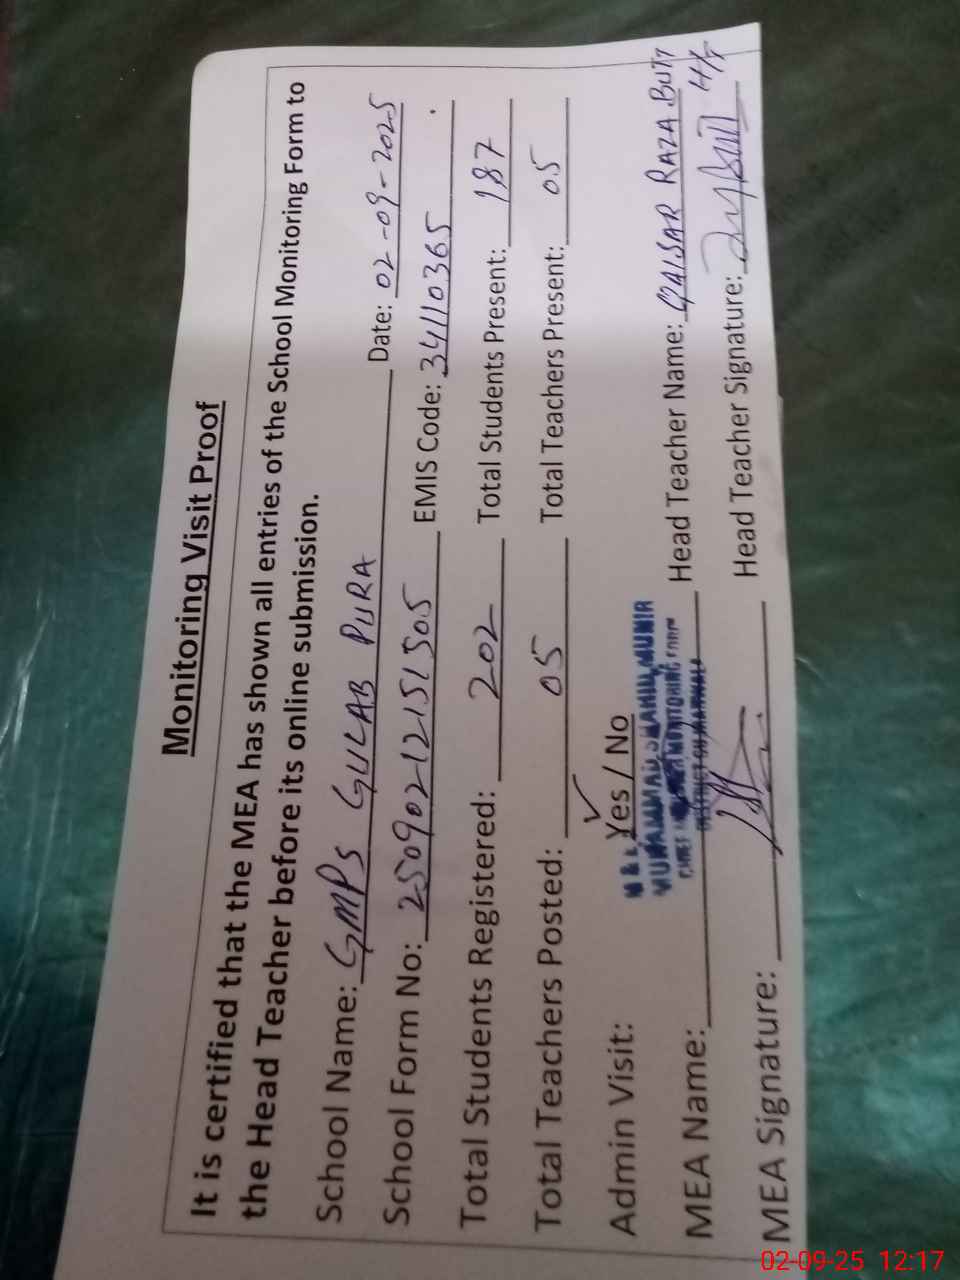 Monitoring Visit Proof
It is certified that the MEA has shown all entries of the School Monitoring Form to
the Head Teacher before its online submission.
School Name: GMPS GULAB PURA Date: 02-09-2025
School Form No: 25090212151505 EMIS Code: 34110365
Total Students Registered: 202 Total Students Present: 187
Total Teachers Posted: 05 Total Teachers Present: 05
Admin Visit: Yes / No
M & E
MUHAMMAD SHAHID MUNIR
CHIEF MINISTER MONITORING FORCE
DISTRICT GUJRANWALA
MEA Name: Head Teacher Name: QAISAR RAZA BUTT
MEA Signature: Head Teacher Signature: H/T
02-09-25 12:17